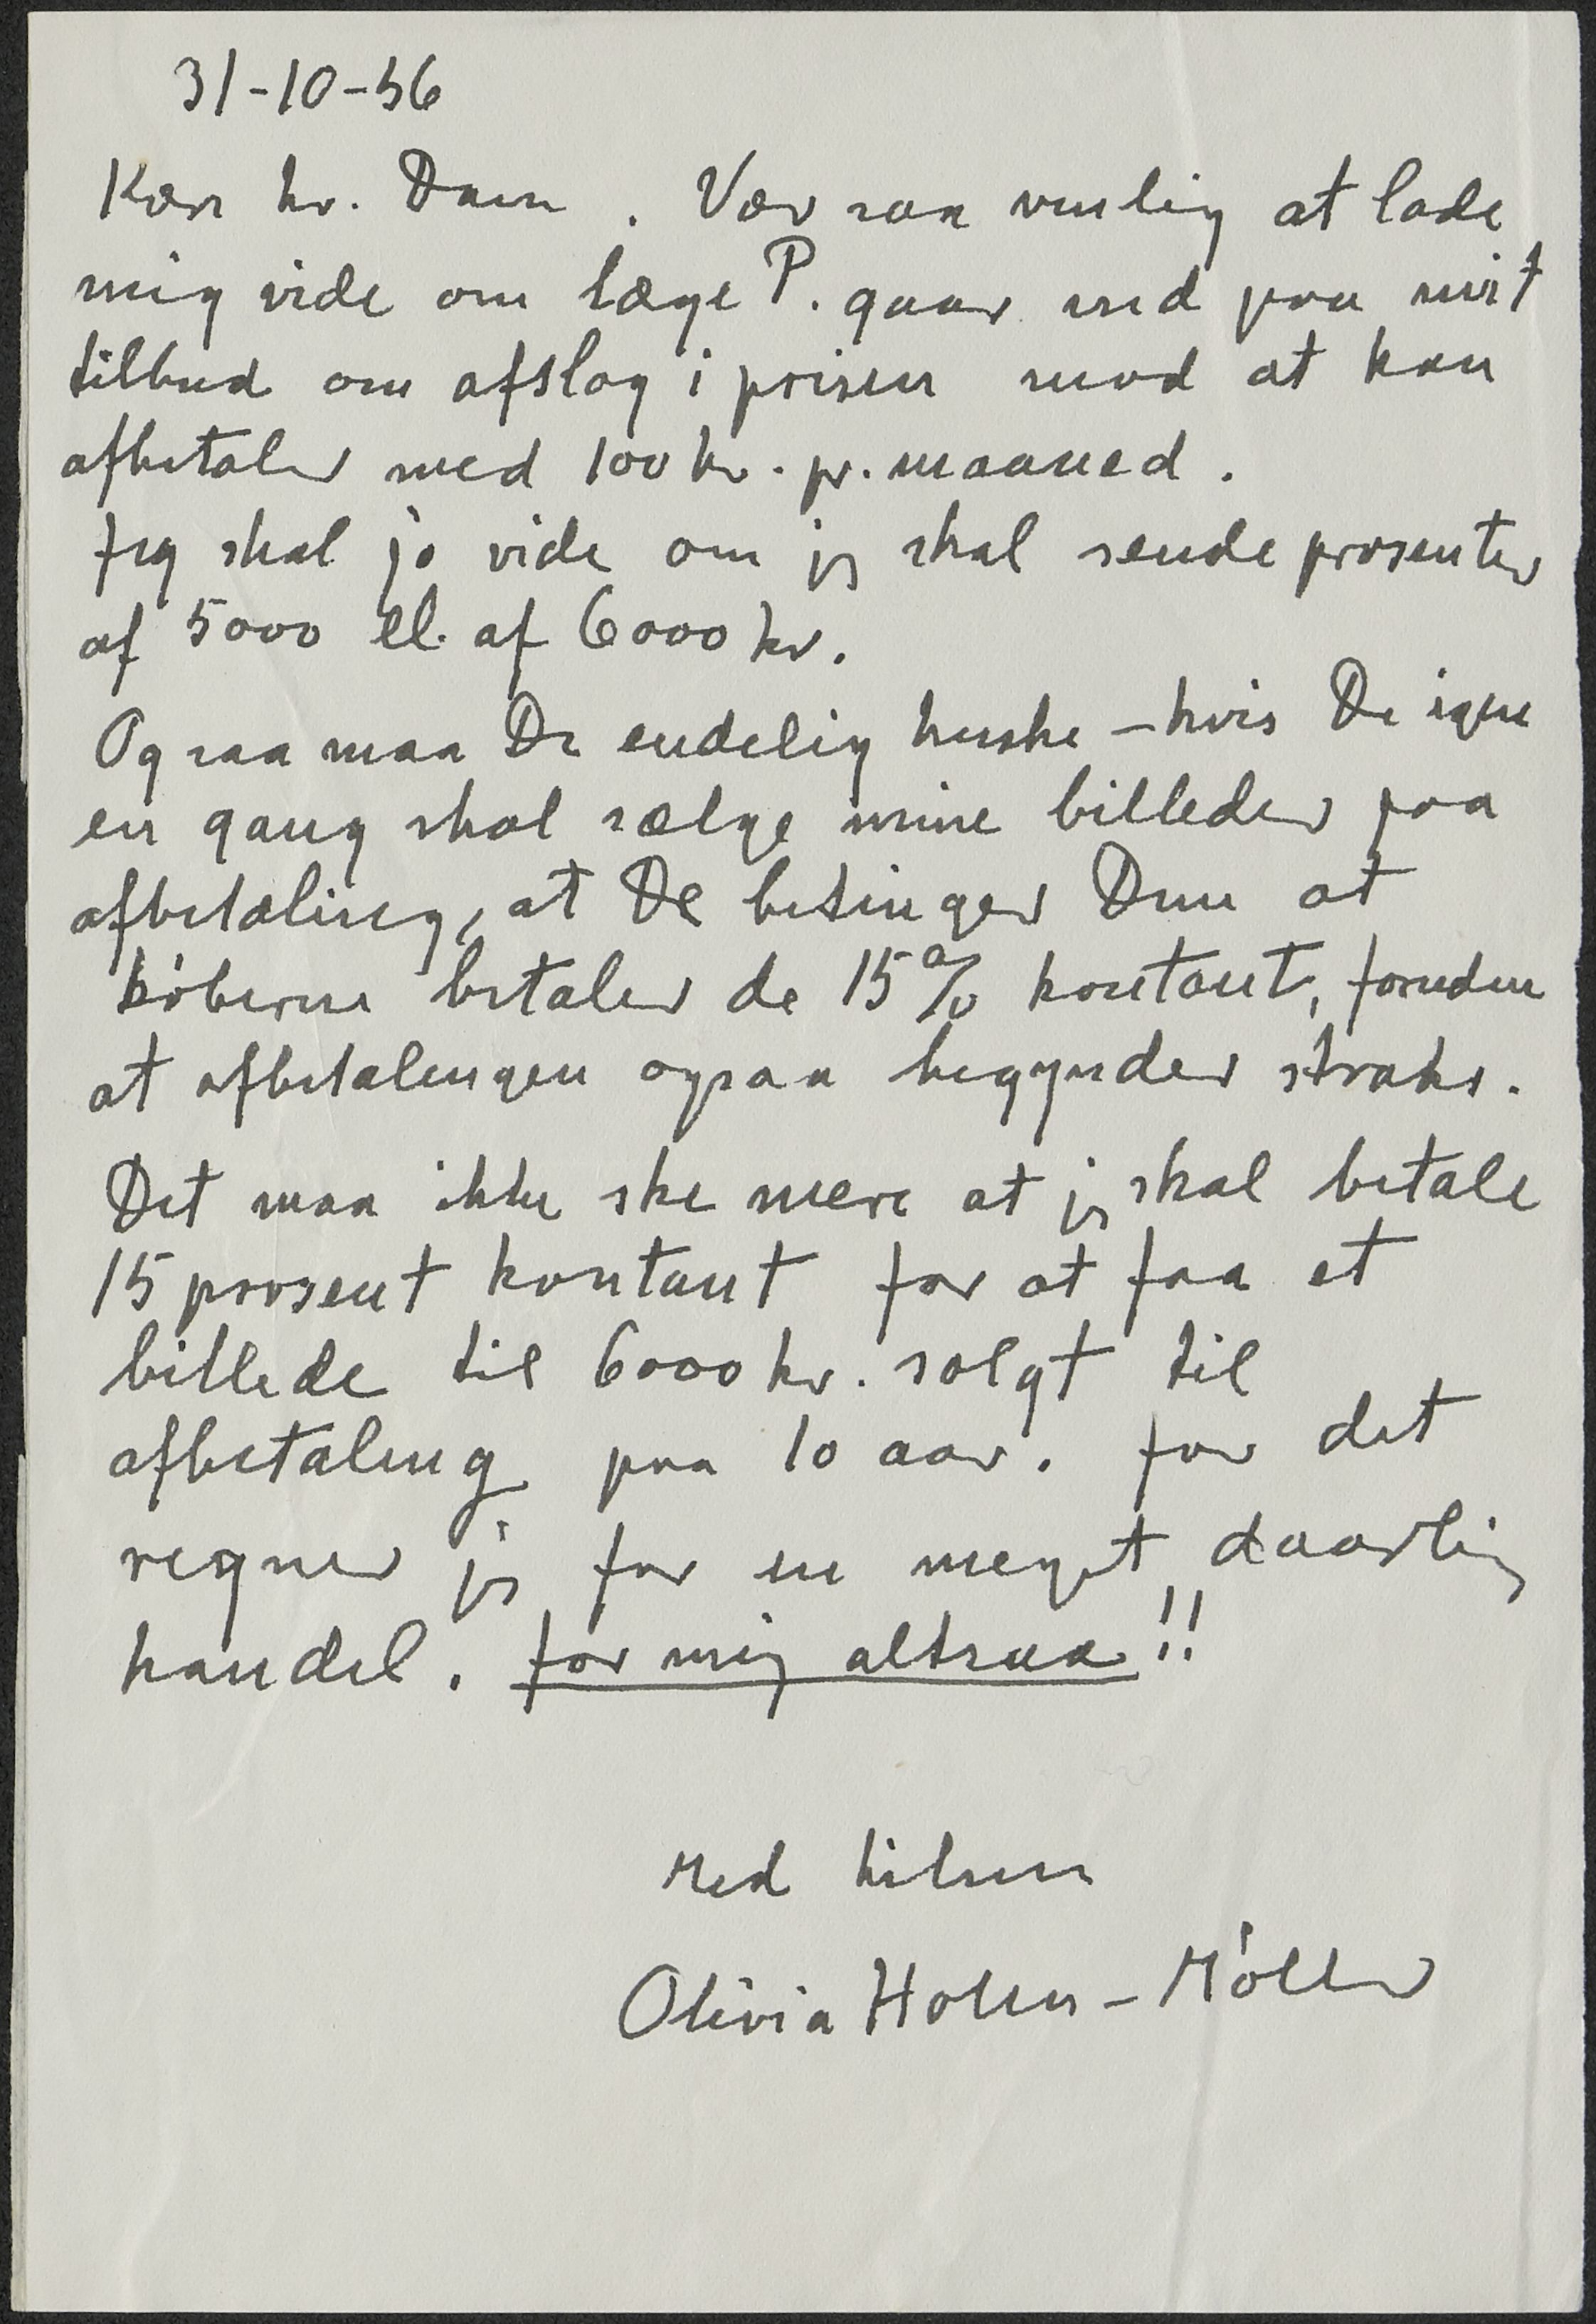 31-10-56
Kære hr. Dam. Vær saa venlig at lade
mig vide om læge P. gaar ind paa mit
tilbud om afslag i prisen mod at han
afbetaler med 100 kr. pr. maaned.
Jeg skal jo vide om jeg skal sende prosenter
af 5000 el. af 6000 kr.
Og saa maa De endelig huske – hvis De igen
en gang skal sælge mine billeder paa
afbetaling, at De betinger Dem at
køberne betaler de 15% kontant, foruden
at afbetalingen ogsaa begynder straks.
Det maa ikke ske mere at jeg skal betale
15 prosent kontant for at faa et
billede til 6000 kr. solgt til
afbetaling paa 10 aar. for det
regner jeg for en meget daarlig
handel. for mig altsaa!!
Med hilsen
Olivia Holm-Møller